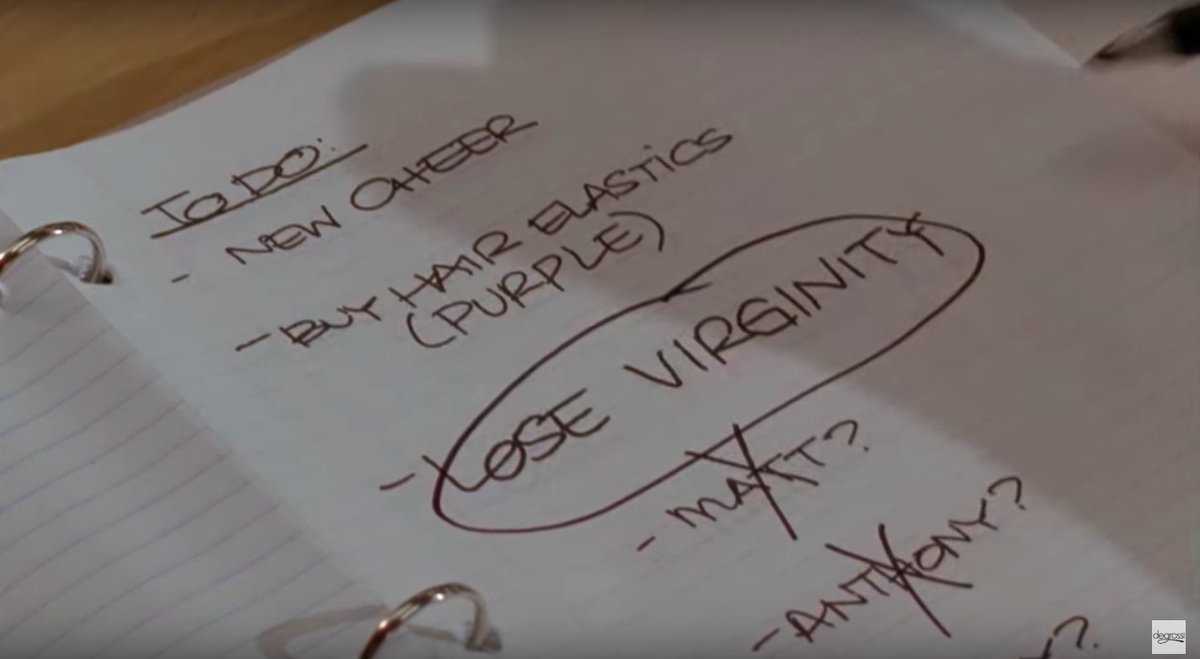 TO DO:
- NEW CHEER
- BUY HAIR ELASTICS
(PURPLE)
- LOSE VIRGINITY
- MATT?
- ANTHONY?
?
degrassi